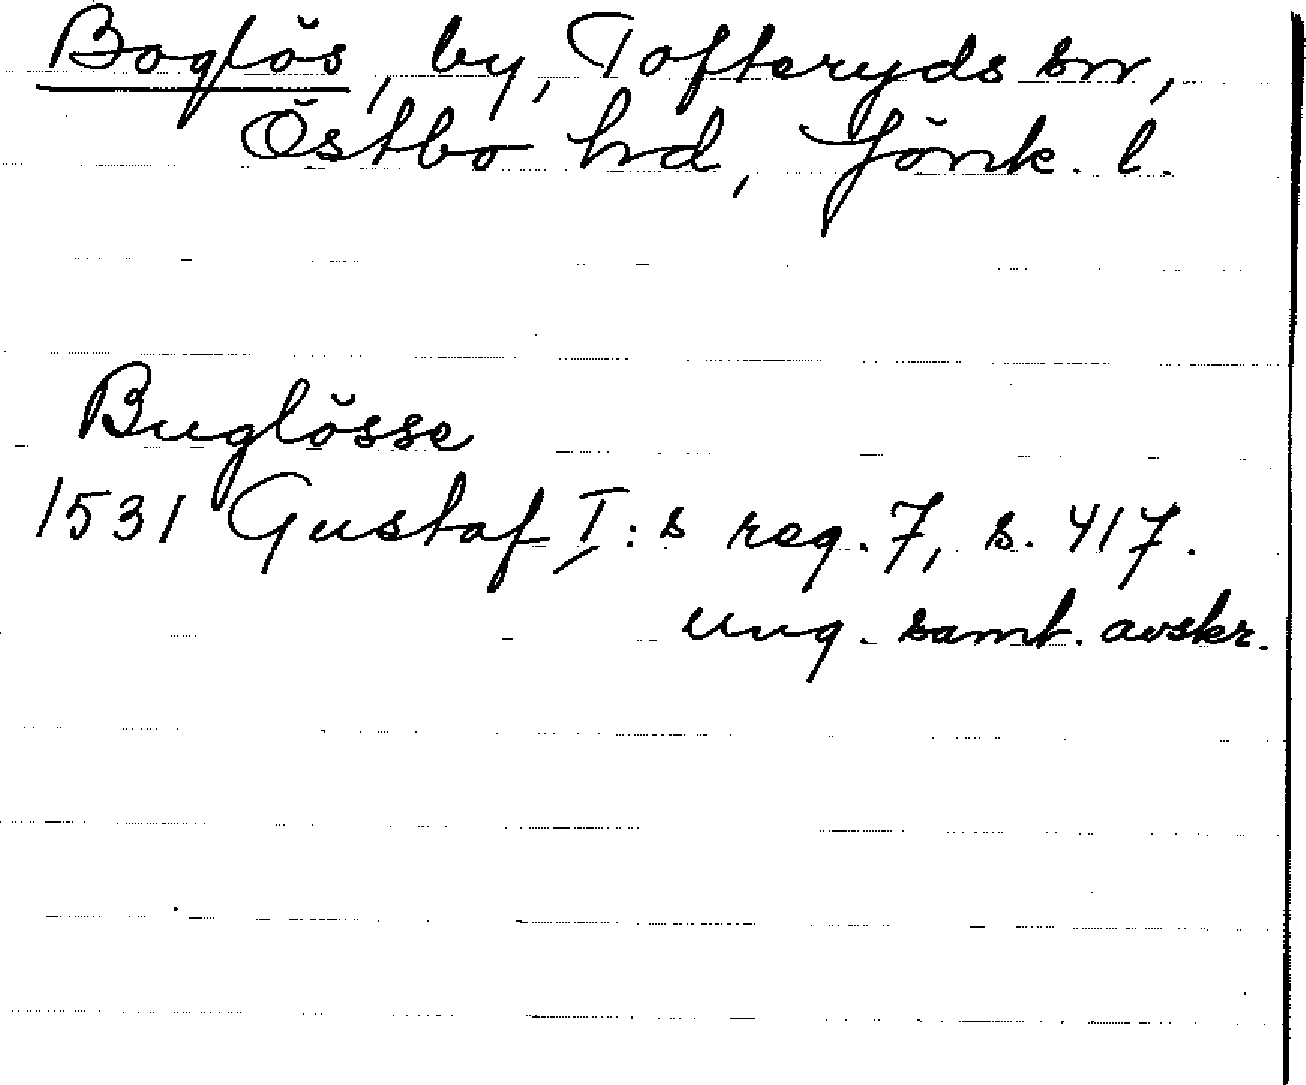 Boglös, by, Tofteryds sn,
Östbo hd, Jönk. l.
Buglösse
1531 Gustaf I:s reg. 7, s. 417.
ung. samt. avskr.